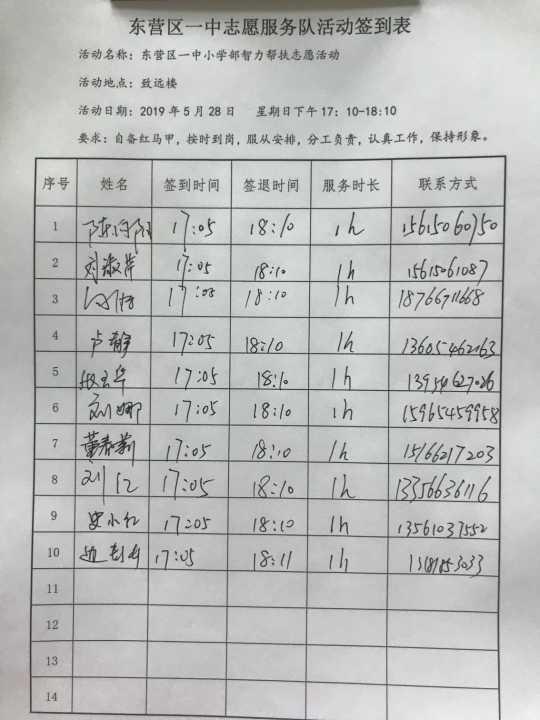 东营区一中志愿服务队活动签到表
活动名称：东营区一中小学部智力帮扶志愿活动
活动地点：致远楼
活动日期：2019年5月28日 星期日下午17：10-18:10
要求：自备红马甲，按时到岗，服从安排，分工负责，认真工作，保持形象。
序号 姓名 签到时间 签退时间 服务时长 联系方式
1 17:05 18:10 1h 15615060750
2 刘淑萍 17:05 18:10 1h 15615061087
3 17:05 18:10 1h 18766711668
4 卢静 17:05 18:10 1h 13605462163
5 17:05 18:10 1h 13954627026
6 刘娜 17:05 18:10 1h 15965459958
7 董春莉 17:05 18:10 1h 15166217203
8 刘红 17:05 18:10 1h 13356636116
9 史小红 17:05 18:10 1h 13561037552
10 17:05 18:11 1h
11
12
13
14